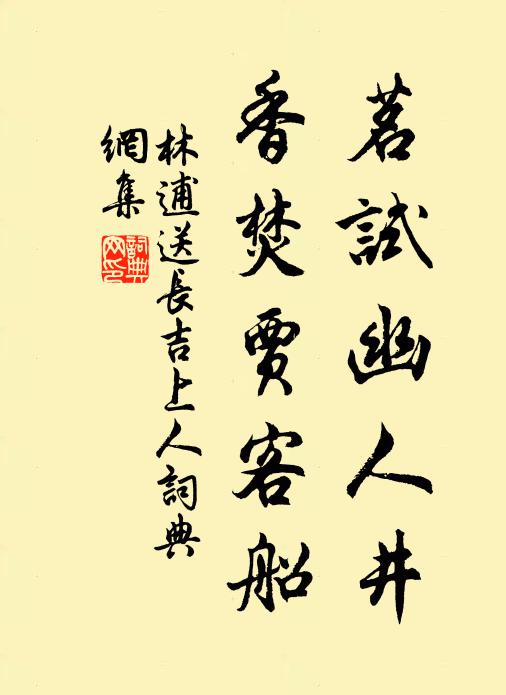 茗試幽人井
香焚賈客船
林逋送長吉上人詞典
網集
詞典
网印